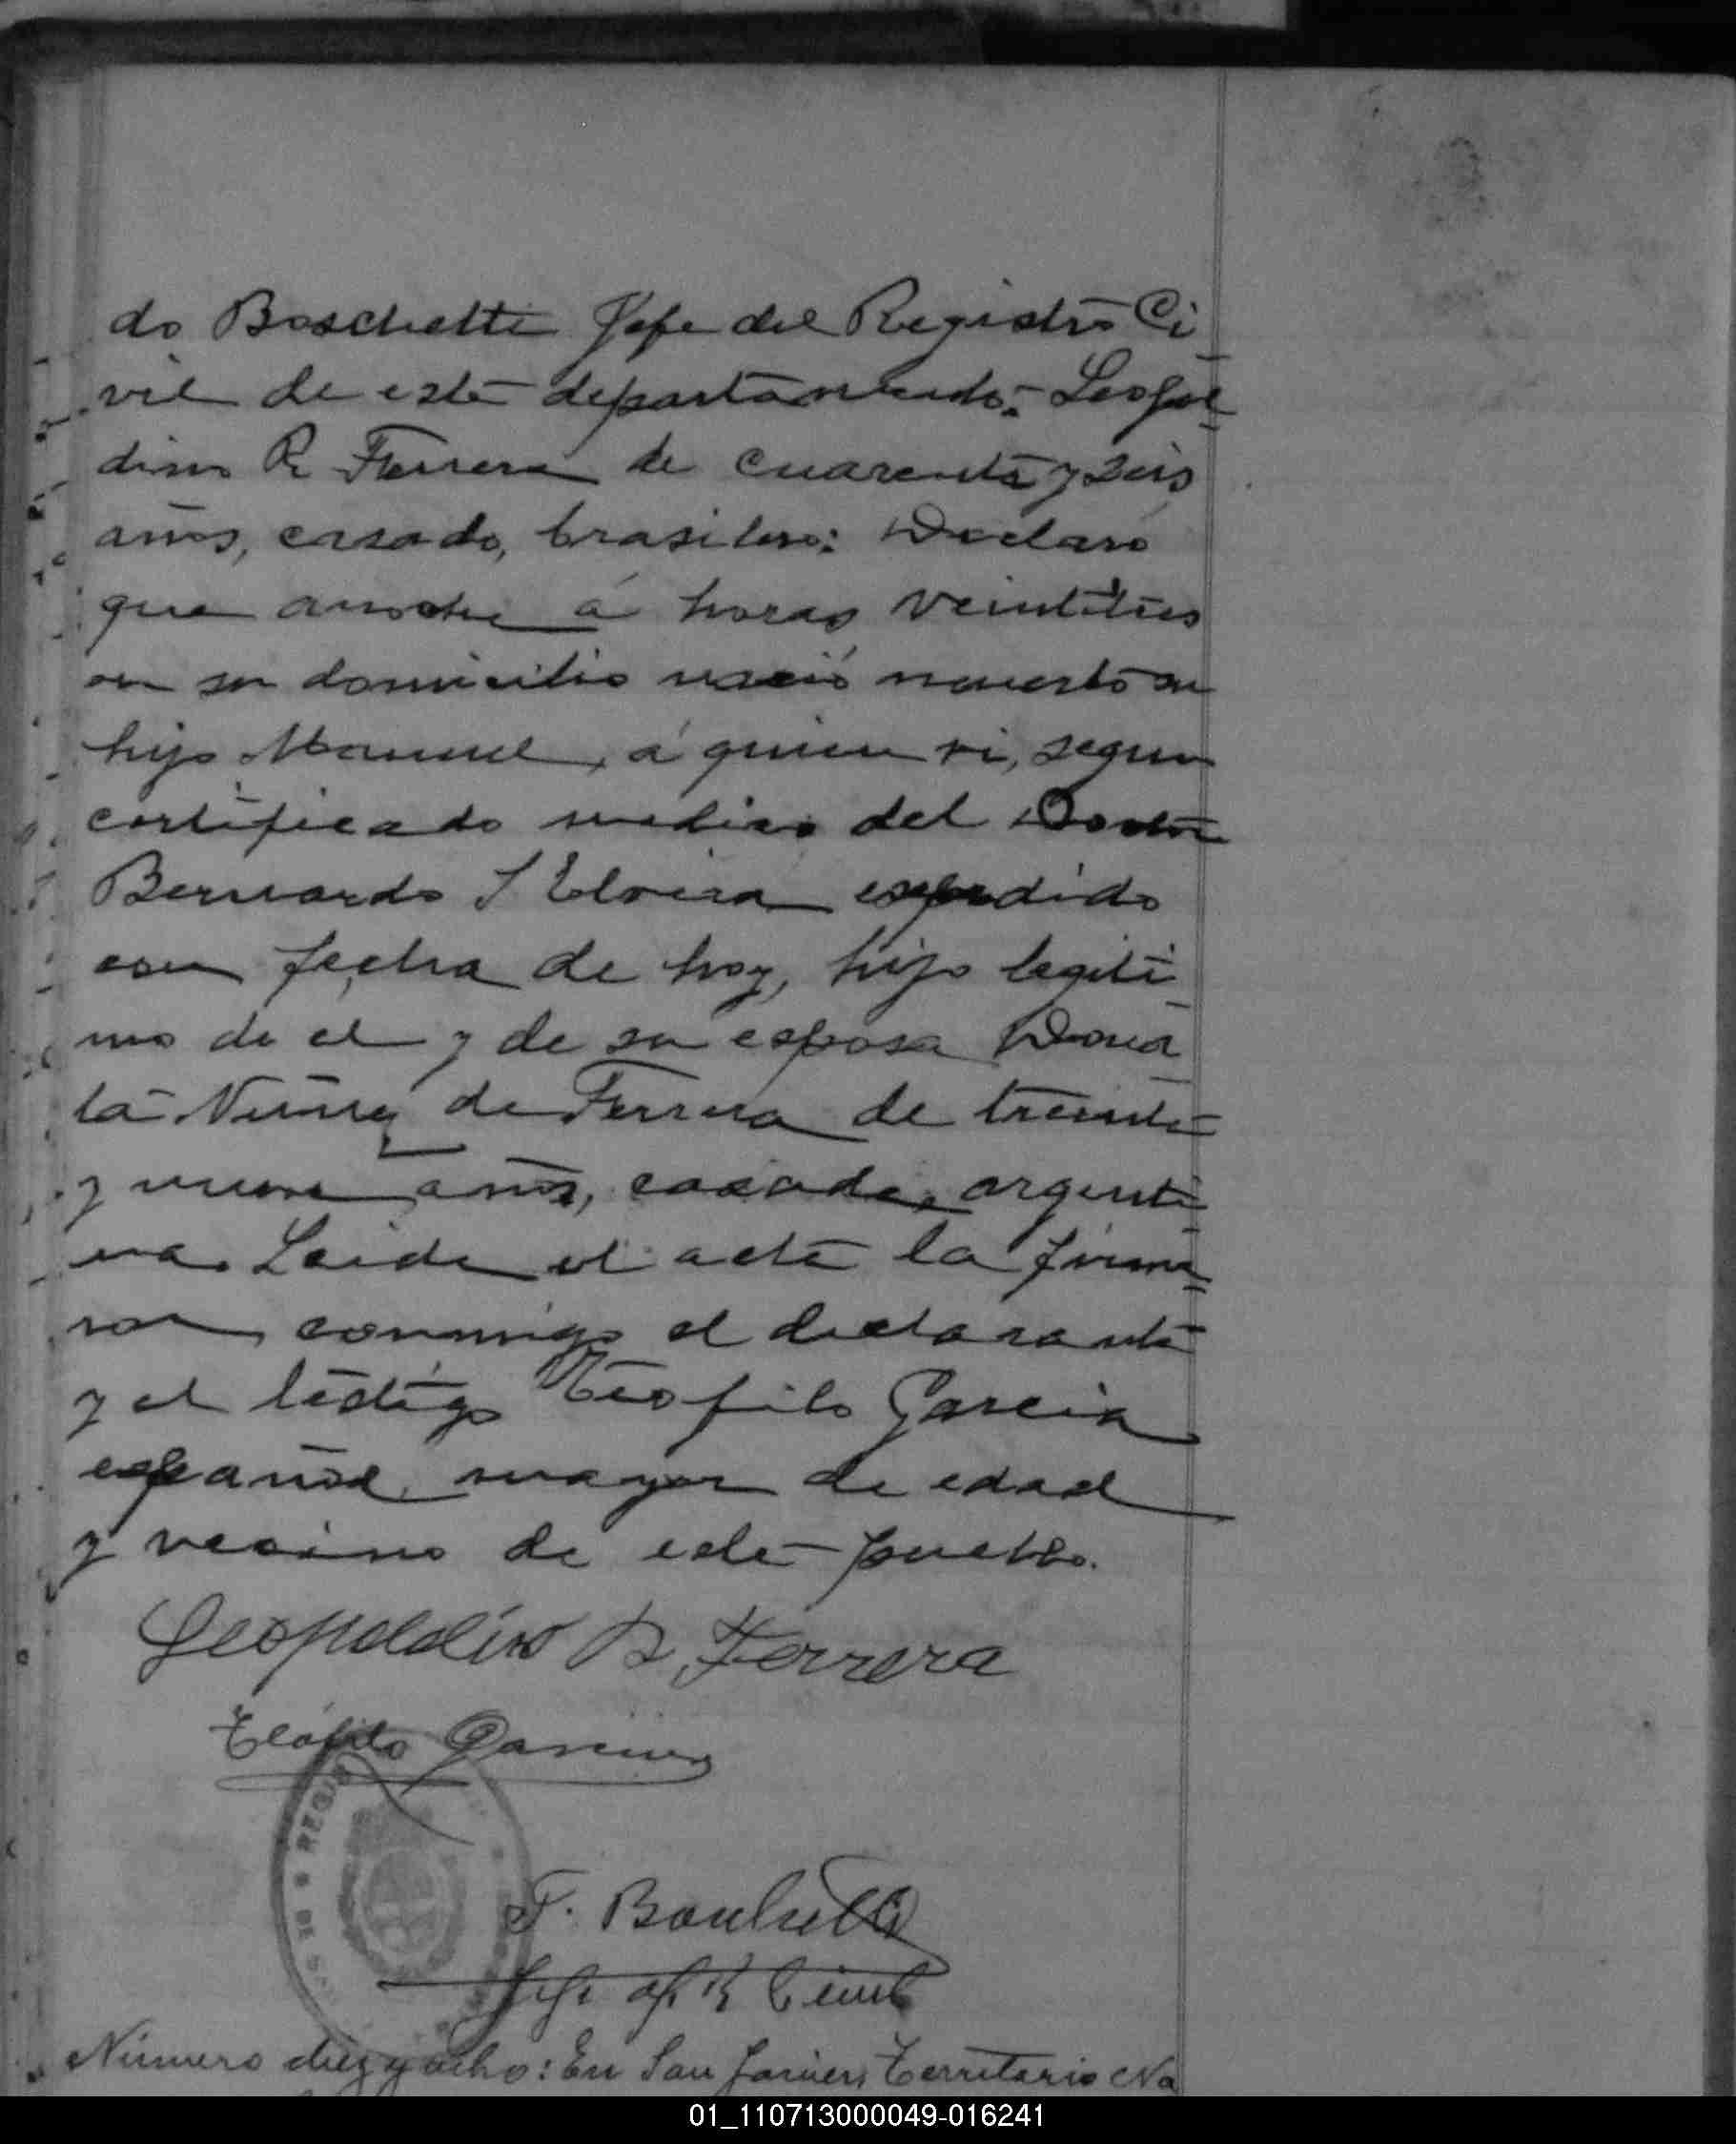 do Boschetti Jefe del Registro Ci
vil de este departamento:- Leopol
dino R Ferrera de cuarenta y seis
años, casado, brasilero: Declaró
que anoche á horas veintitres
en su domicilio nació muerto su
hijo Manuel, á quien vi, segun
certificado medico del Doctor
Bernardo S Elvira espedido
con fecha de hoy, hijo legiti
mo de el y de su esposa Dona
ta Nuñez de Ferrera de treinta
y nueve años, casada, argenti
na. Leida el acta la firma
ron conmigo el declarante
y el testigo Teofilo Garcia
español, mayor de edad
y vecino de este pueblo.
Leopoldino R. Ferrera
Teófilo Garcia
F. Boschetti
Jefe of. R Civil
REGIS
Número diez y ocho: En San Javier, Territorio Na
01_110713000049-016241